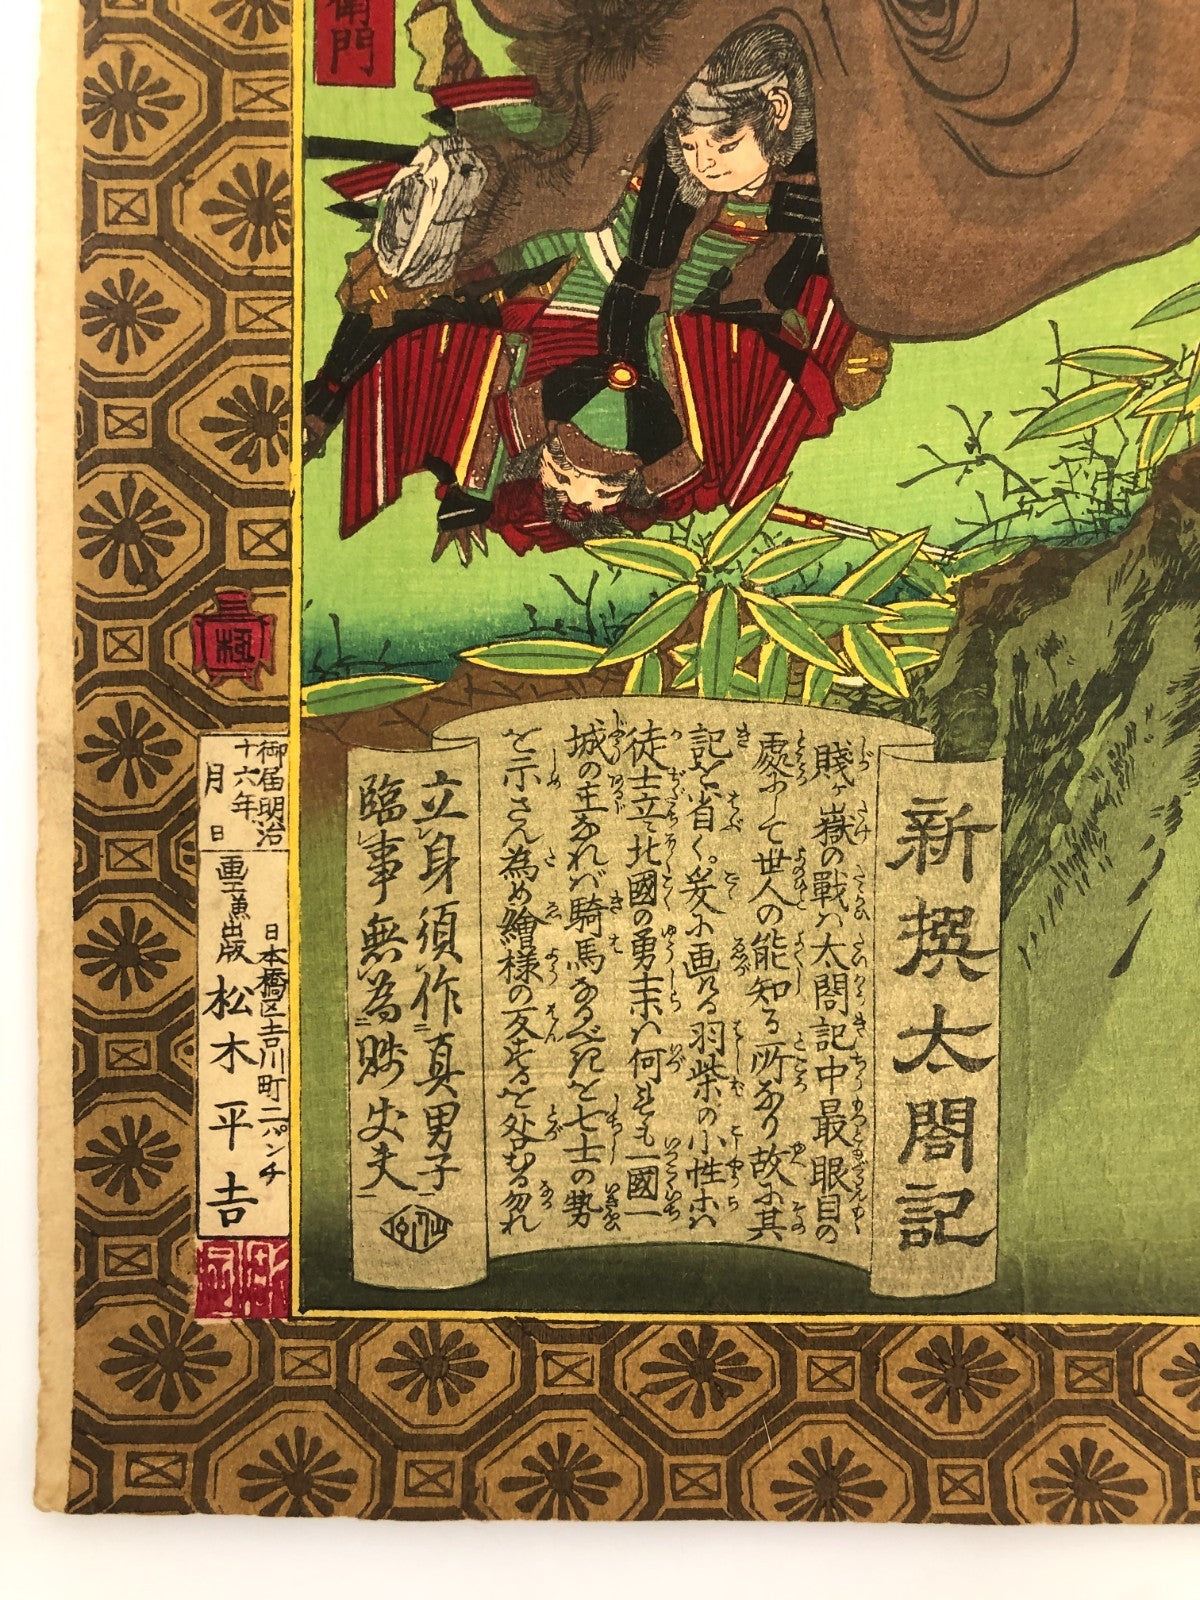 衛門
新撰太閤記
賤ヶ嶽の戰ハ太閤記中最眼目の
處にして世人の能知る所なり故に其
記を省く爰に画れる羽柴の小性ホハ
徒士立て北國の勇士ホハ何れも一國一
城の主なれバ騎馬なるべきを七士の勢
を示さん為め繪様の
立身須作真男子
臨事無為賤丈夫
御届明治
十六年
月 日
画工兼出版
日本橋区吉川町二バンチ
松木平吉